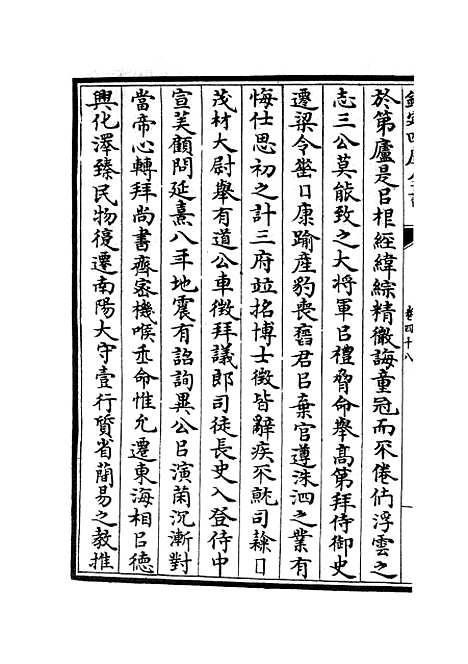 欽定四庫全書
卷四十八
於第廬是㠯桹經緯綜精徽誨童冠而不倦㐲浮雲之
志三公莫能致之大將軍㠯禮脅命舉高第拜侍御史
遷梁令㘸口康踰産豹喪舊君㠯棄官遵洙泗之業有
悔仕思初之計三府竝招博士徴皆辭疾不就司𨽻口
茂材大尉舉有道公車徴拜議郎司徒長史入登侍中
宣美顧問延熹八年地震有詔詢異公㠯演菌沉漸對
當帝心轉拜尚書齊宻機喉𠀻命惟允遷東海相㠯德
興化澤臻民物復遷南陽大守壹行質省蕳易之教推